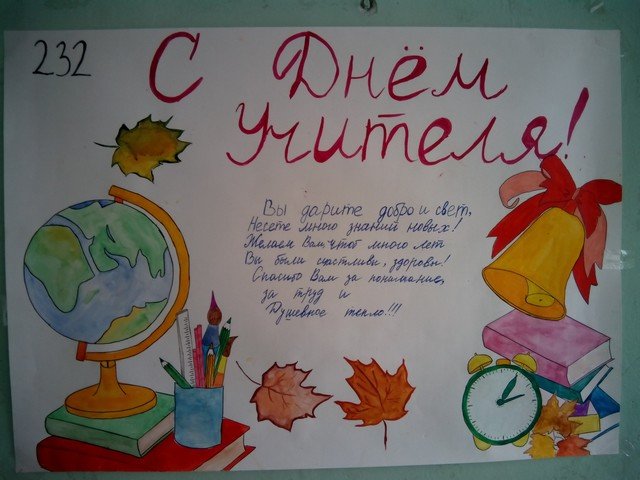 232
С Днём
Учителя!
Вы дарите добро и свет,
Несете много знаний новых!
Желаем Вам, чтоб много лет
Вы были счастливы, здоровы!
Спасибо Вам за понимание,
за труд и
Душевное тепло!!!